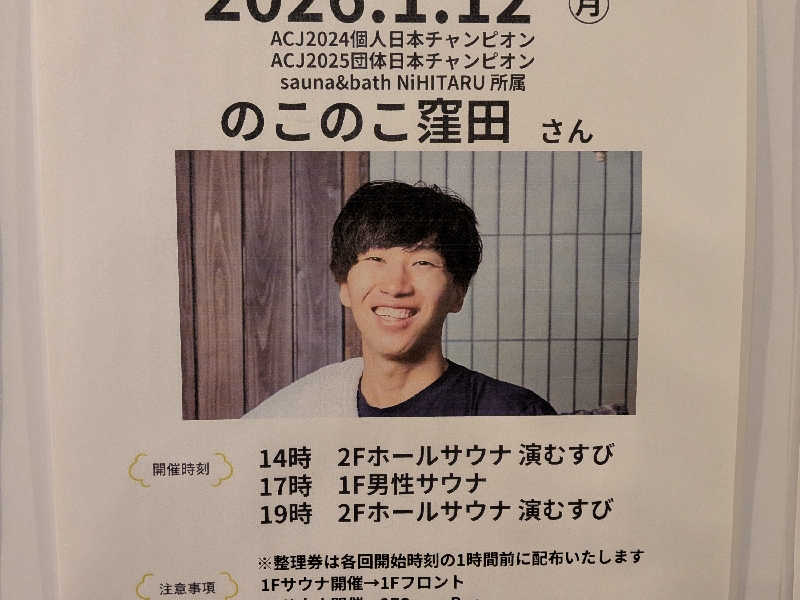 2026.1.12 月
ACJ2024個人日本チャンピオン
ACJ2025団体日本チャンピオン
sauna&bath NiHITARU 所属
のこのこ窪田 さん
開催時刻
14時 2Fホールサウナ 演むすび
17時 1F男性サウナ
19時 2Fホールサウナ 演むすび
注意事項
※整理券は各回開始時刻の1時間前に配布いたします
1Fサウナ開催→1Fフロント